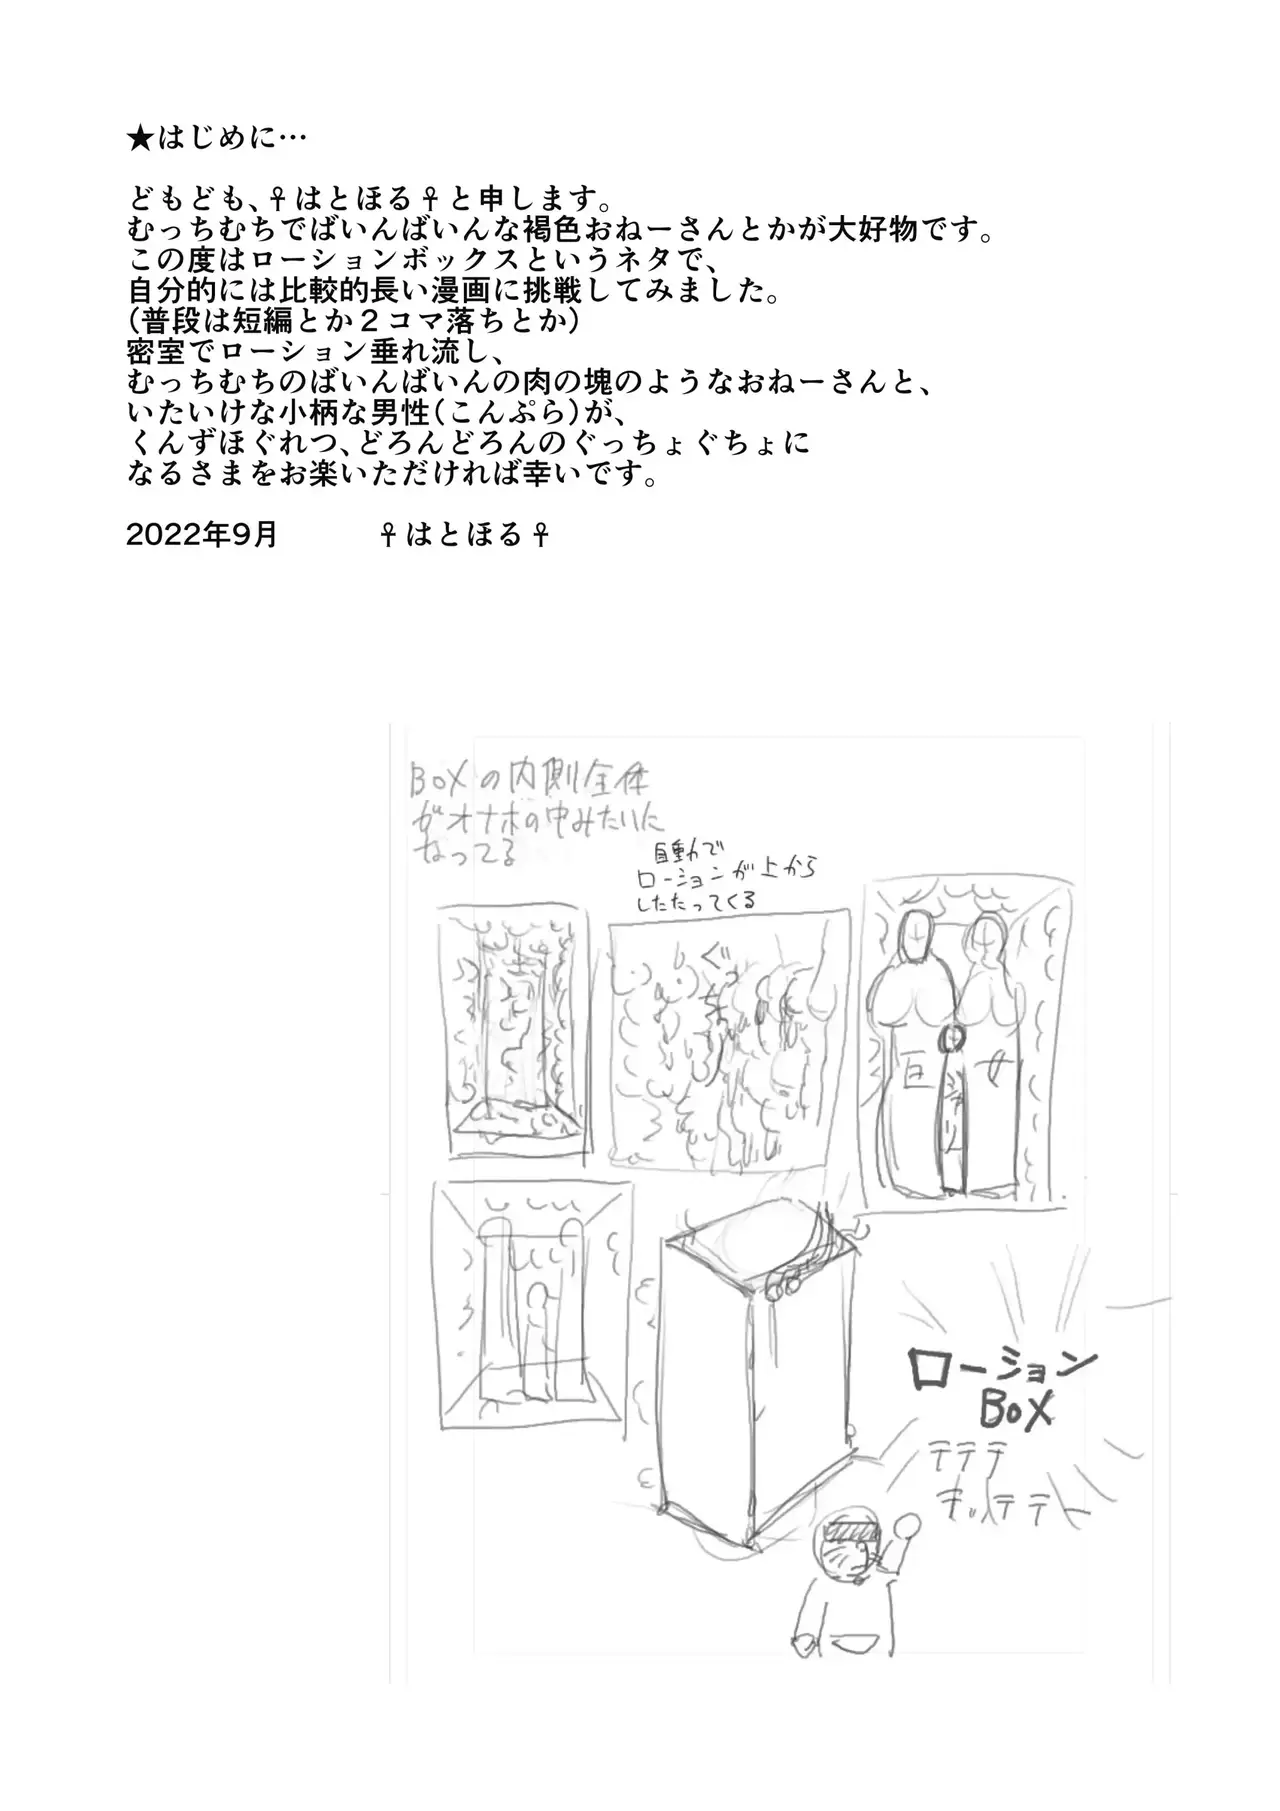 ★はじめに…
どもども、♀はとほる♀と申します。
むっちむちでばいんばいんな褐色おねーさんとかが大好物です。
この度はローションボックスというネタで、
自分的には比較的長い漫画に挑戦してみました。
（普段は短編とか２コマ落ちとか）
密室でローション垂れ流し、
むっちむちのばいんばいんの肉の塊のようなおねーさんと、
いたいけな小柄な男性（こんぷら）が、
くんずほぐれつ、どろんどろんのぐっちょぐちょに
なるさまをお楽いただければ幸いです。
2022年9月 ♀はとほる♀
BOXの内側全体
がオナホの中みたいに
なってる
自動で
ローションが上から
したたってくる
ぐっ
巨 女
ローション
BOX
テテテ
テッテテー